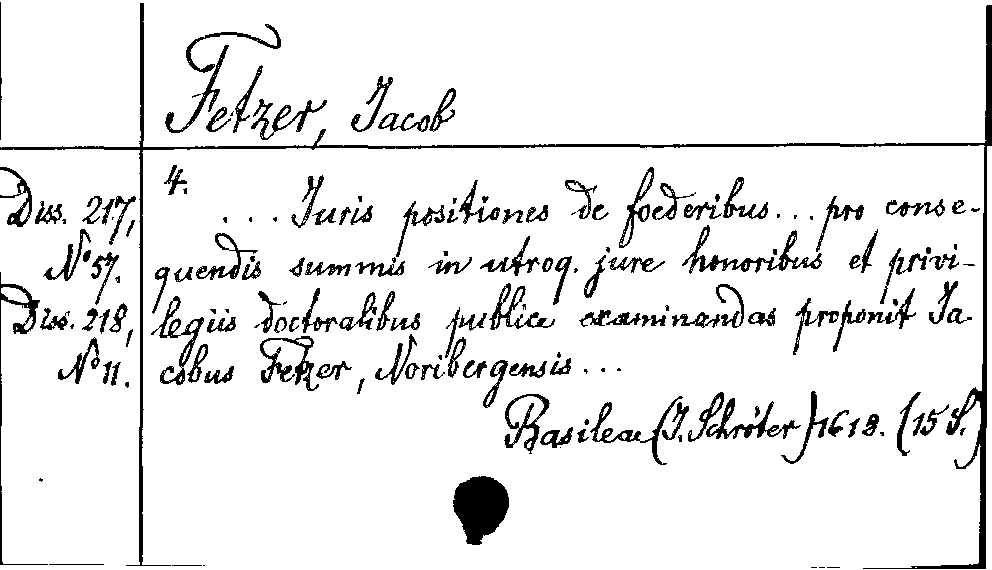 Fetzer, Jacob
4.
Diss. 217, ... Juris positiones de foederibus... pro conse-
No 57. quendis summis in utroq. jure honoribus et privi-
Diss. 218, legiis doctoralibus publice examinandas proponit Ja-
No 11. cobus Fetzer, Noribergensis ...
Basileae (J. Schröter) 1618. (15 S.)